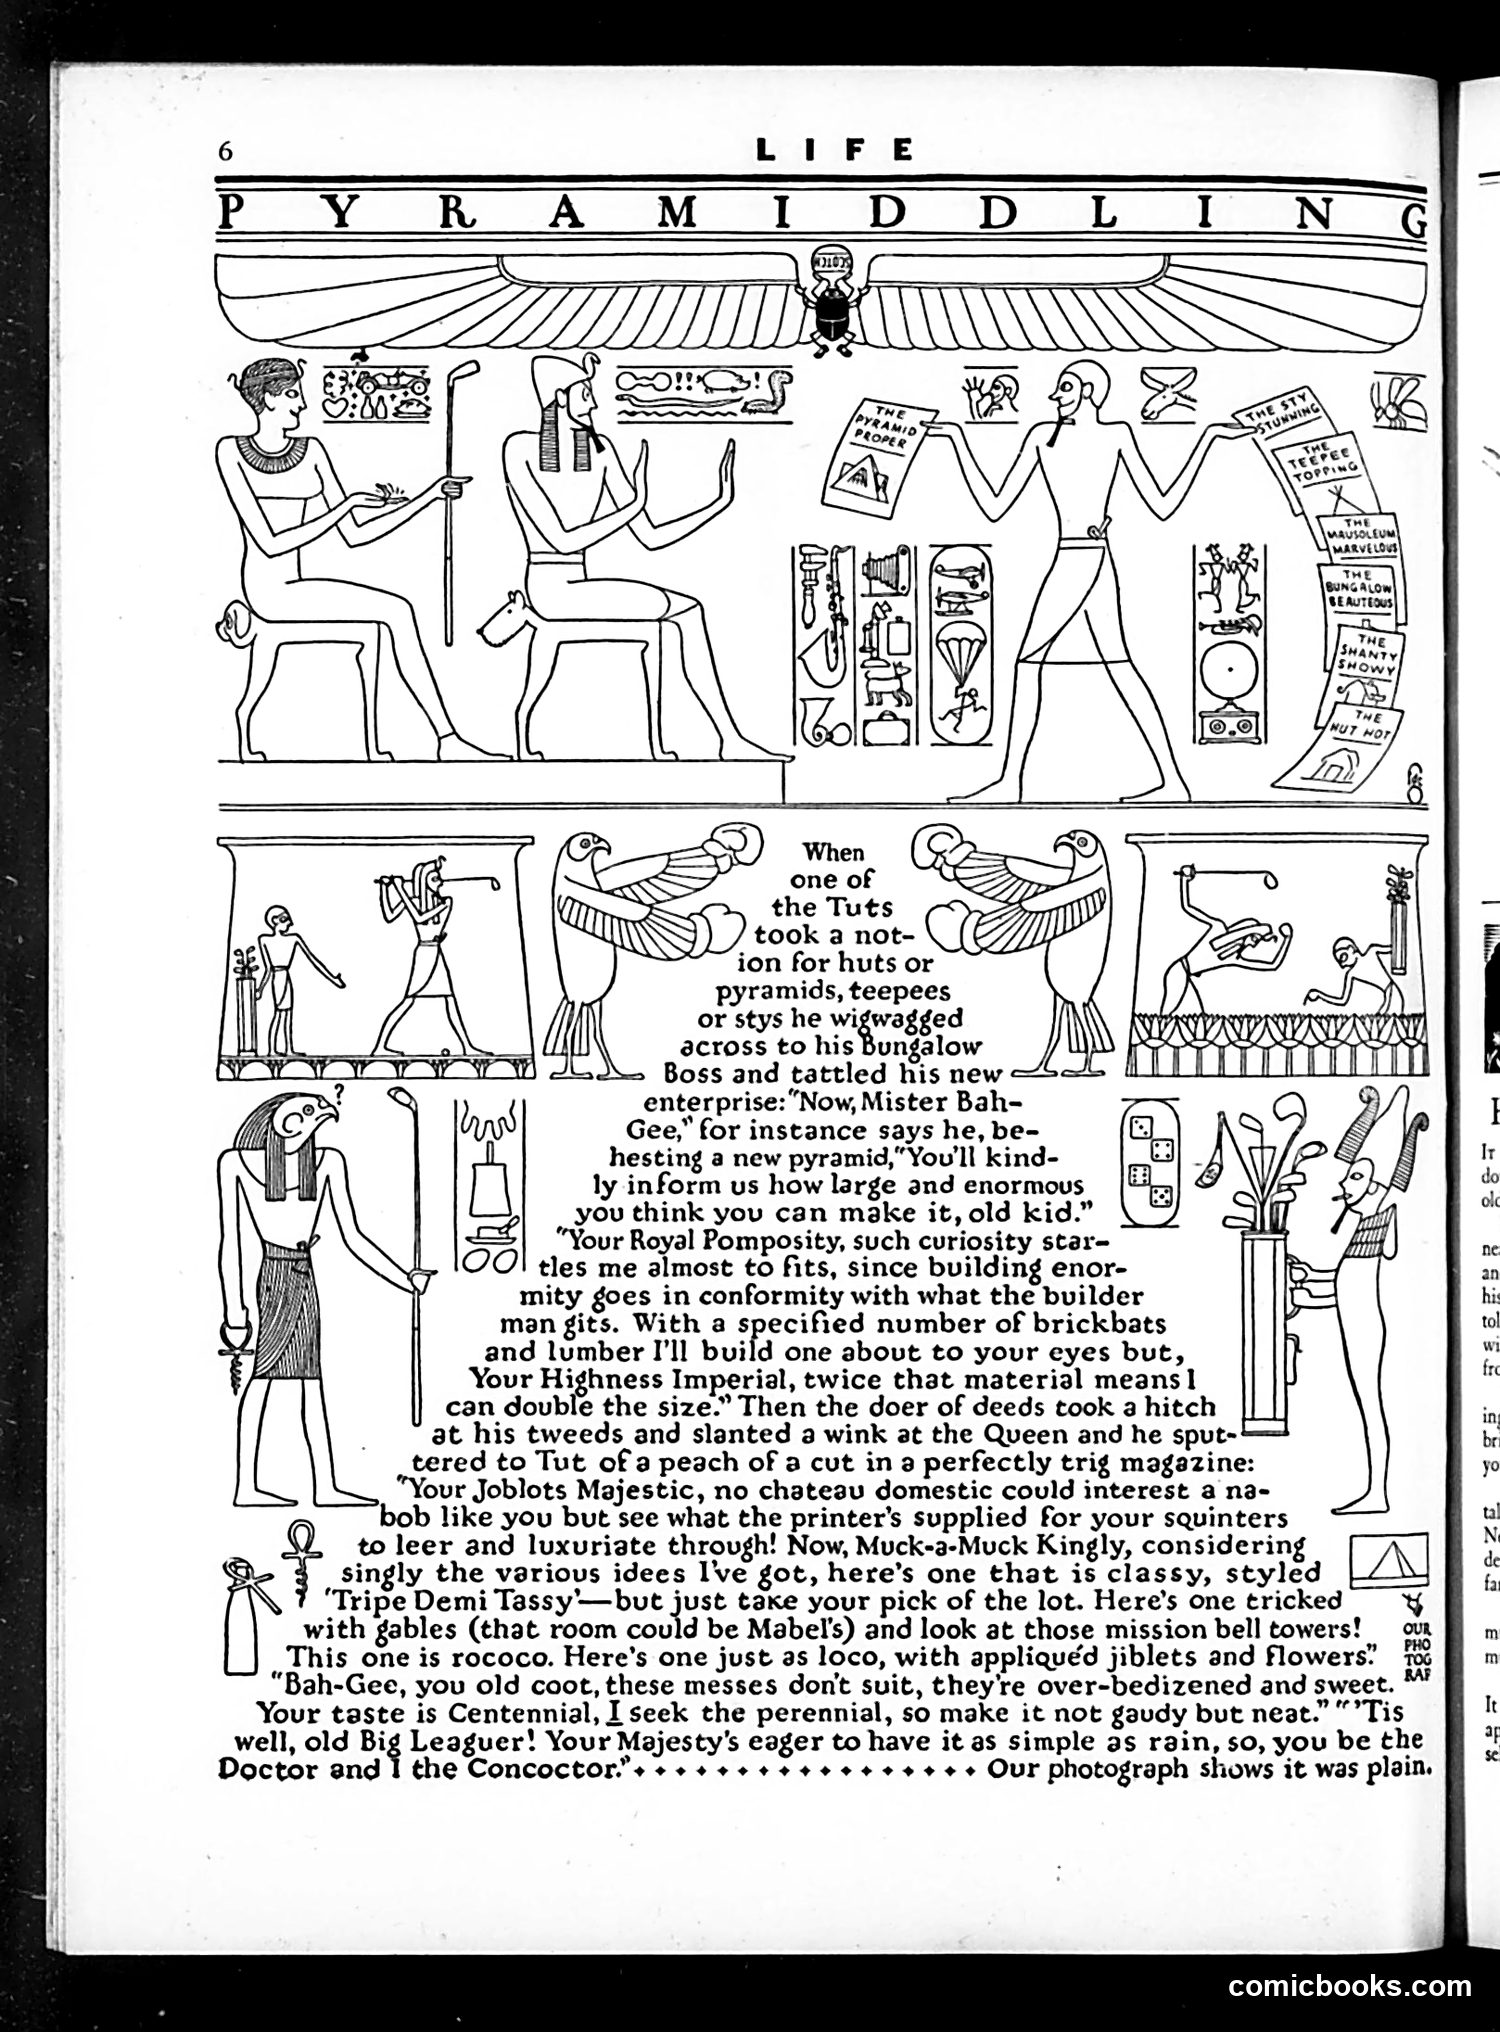 6
LIFE
PYRAMIDDLING
SCOTCH
THE
PYRAMID
PROPER
THE STY
STUNNING
THE
TEEPEE
TOPPING
THE
MAUSOLEUM
MARVELOUS
THE
BUNGALOW
BEAUTEOUS
THE
SHANTY
SHOWY
THE
HUT HOT
When
one of
the Tuts
took a not-
ion for huts or
pyramids, teepees
or stys he wigwagged
across to his Bungalow
Boss and tattled his new
enterprise: "Now, Mister Bah-
Gee," for instance says he, be-
hesting a new pyramid, "You'll kind-
ly inform us how large and enormous
you think you can make it, old kid."
"Your Royal Pomposity, such curiosity star-
tles me almost to fits, since building enor-
mity goes in conformity with what the builder
man gits. With a specified number of brickbats
and lumber I'll build one about to your eyes but,
Your Highness Imperial, twice that material means I
can double the size." Then the doer of deeds took a hitch
at his tweeds and slanted a wink at the Queen and he sput-
tered to Tut of a peach of a cut in a perfectly trig magazine:
"Your Joblots Majestic, no chateau domestic could interest a na-
bob like you but see what the printer's supplied for your squinters
to leer and luxuriate through! Now, Muck-a-Muck Kingly, considering
singly the various idees I've got, here's one that is classy, styled
'Tripe Demi Tassy'—but just take your pick of the lot. Here's one tricked
with gables (that room could be Mabel's) and look at those mission bell towers!
This one is rococo. Here's one just as loco, with appliquéd jiblets and flowers."
"Bah-Gee, you old coot, these messes don't suit, they're over-bedizened and sweet.
Your taste is Centennial, I seek the perennial, so make it not gaudy but neat." "'Tis
well, old Big Leaguer! Your Majesty's eager to have it as simple as rain, so, you be the
Doctor and I the Concoctor." • • • • • • • • • • • • • • • • • Our photograph shows it was plain.
OUR
PHO
TOG
RAF
comicbooks.com